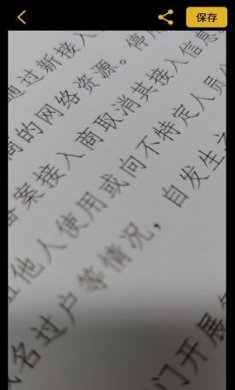 保存
通过新接入
的网络资源。停
案接入商取消其接入信息
他人使用或向不特定人员
名过户等情况，自发生之
门开展